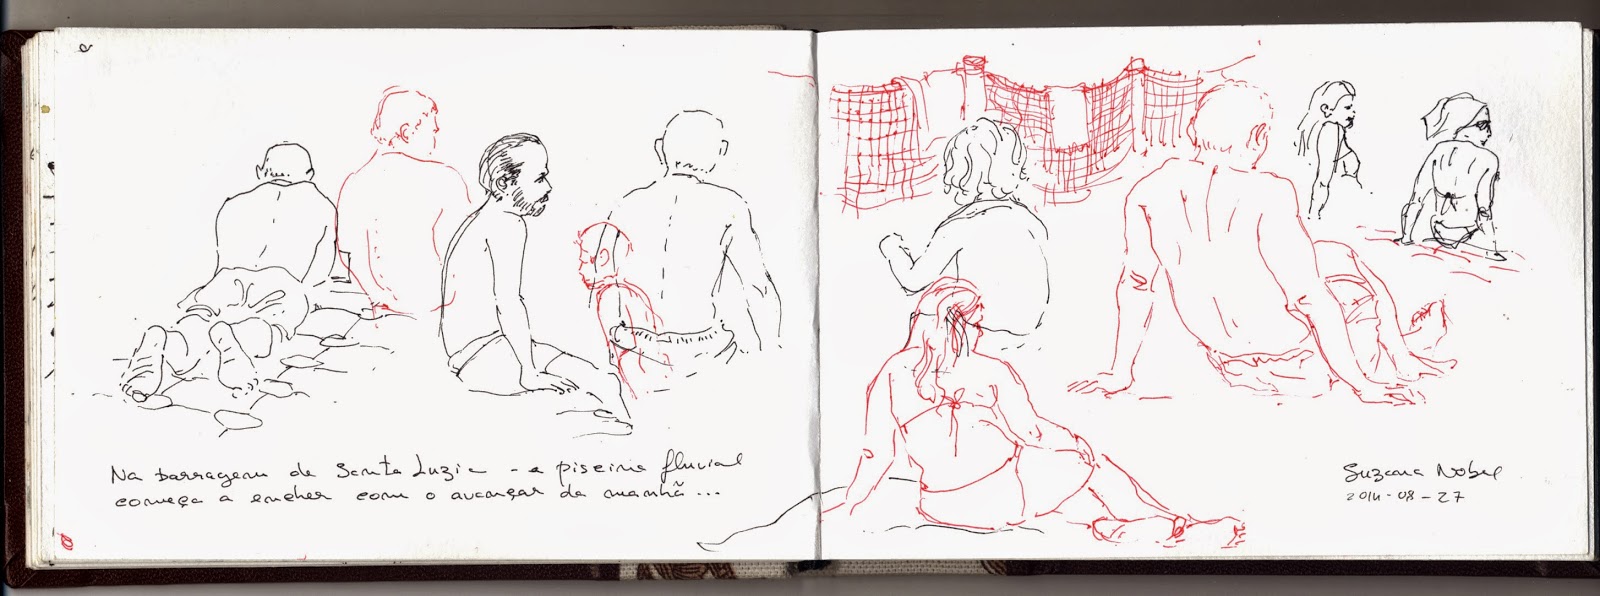 Na barragem de Santa Luzia - a piscina fluvial
começa a encher com o avançar da manhã...
Suzana Nobre
2014-08-27